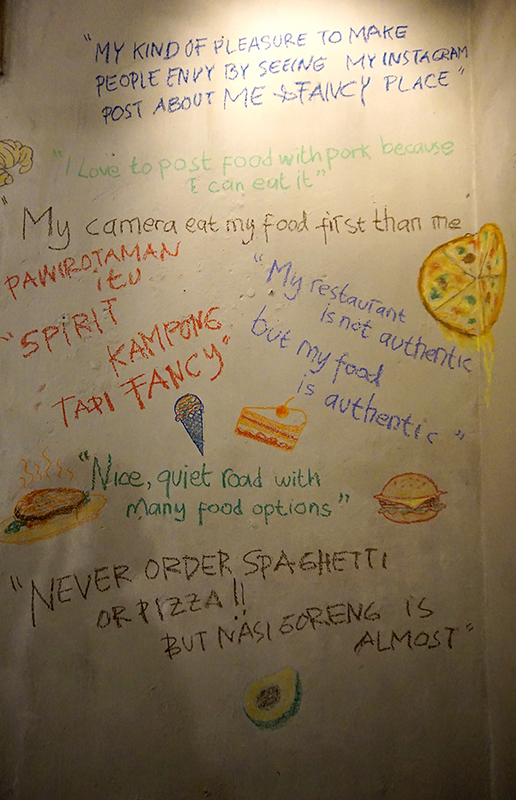 "MY KIND OF PLEASURE TO MAKE
PEOPLE ENVY BY SEEING MY INSTAGRAM
POST ABOUT ME & FANCY PLACE"
"I Love to post food with pork because
I can eat it"
"My camera eat my food first than me
PAWIROTAMAN
itu
"SPIRIT
KAMPONG
TAPI FANCY"
"My restaurant
is not authentic
but my food
is authentic"
"Nice, quiet road with
many food options"
"NEVER ORDER SPAGHETTI
OR PIZZA!!
BUT NASI GORENG IS
ALMOST"